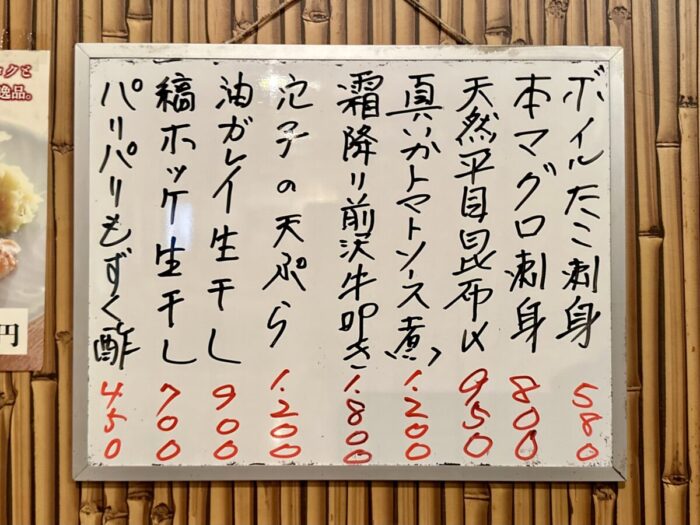 ボイルたこ刺身 580
本マグロ刺身 800
天然平目昆布〆 950
真いかトマトソース煮 1.200
霜降り前沢牛叩き 1.800
の天ぷら 1.200
油ガレイ生干し 900
縞ホッケ生干し 700
パリパリもずく酢 450
逸品。
円